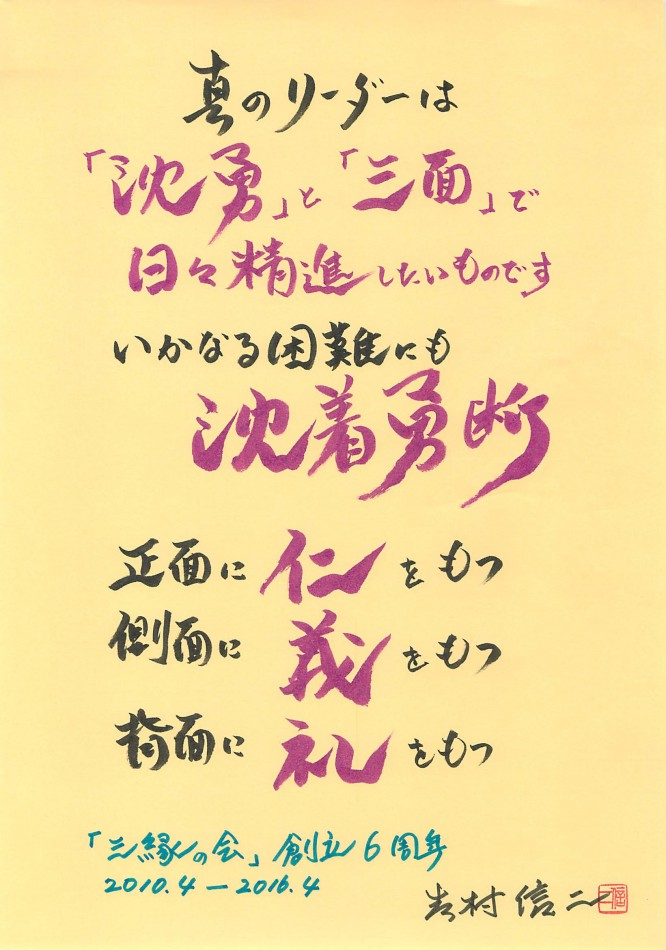 真のリーダーは
「沈勇」と「三面」で
日々精進したいものです
いかなる困難にも
沈着勇断
正面に仁をもつ
側面に義をもつ
背面に礼をもつ
「三縁の会」創立6周年
2010.4―2016.4
吉村信二
信